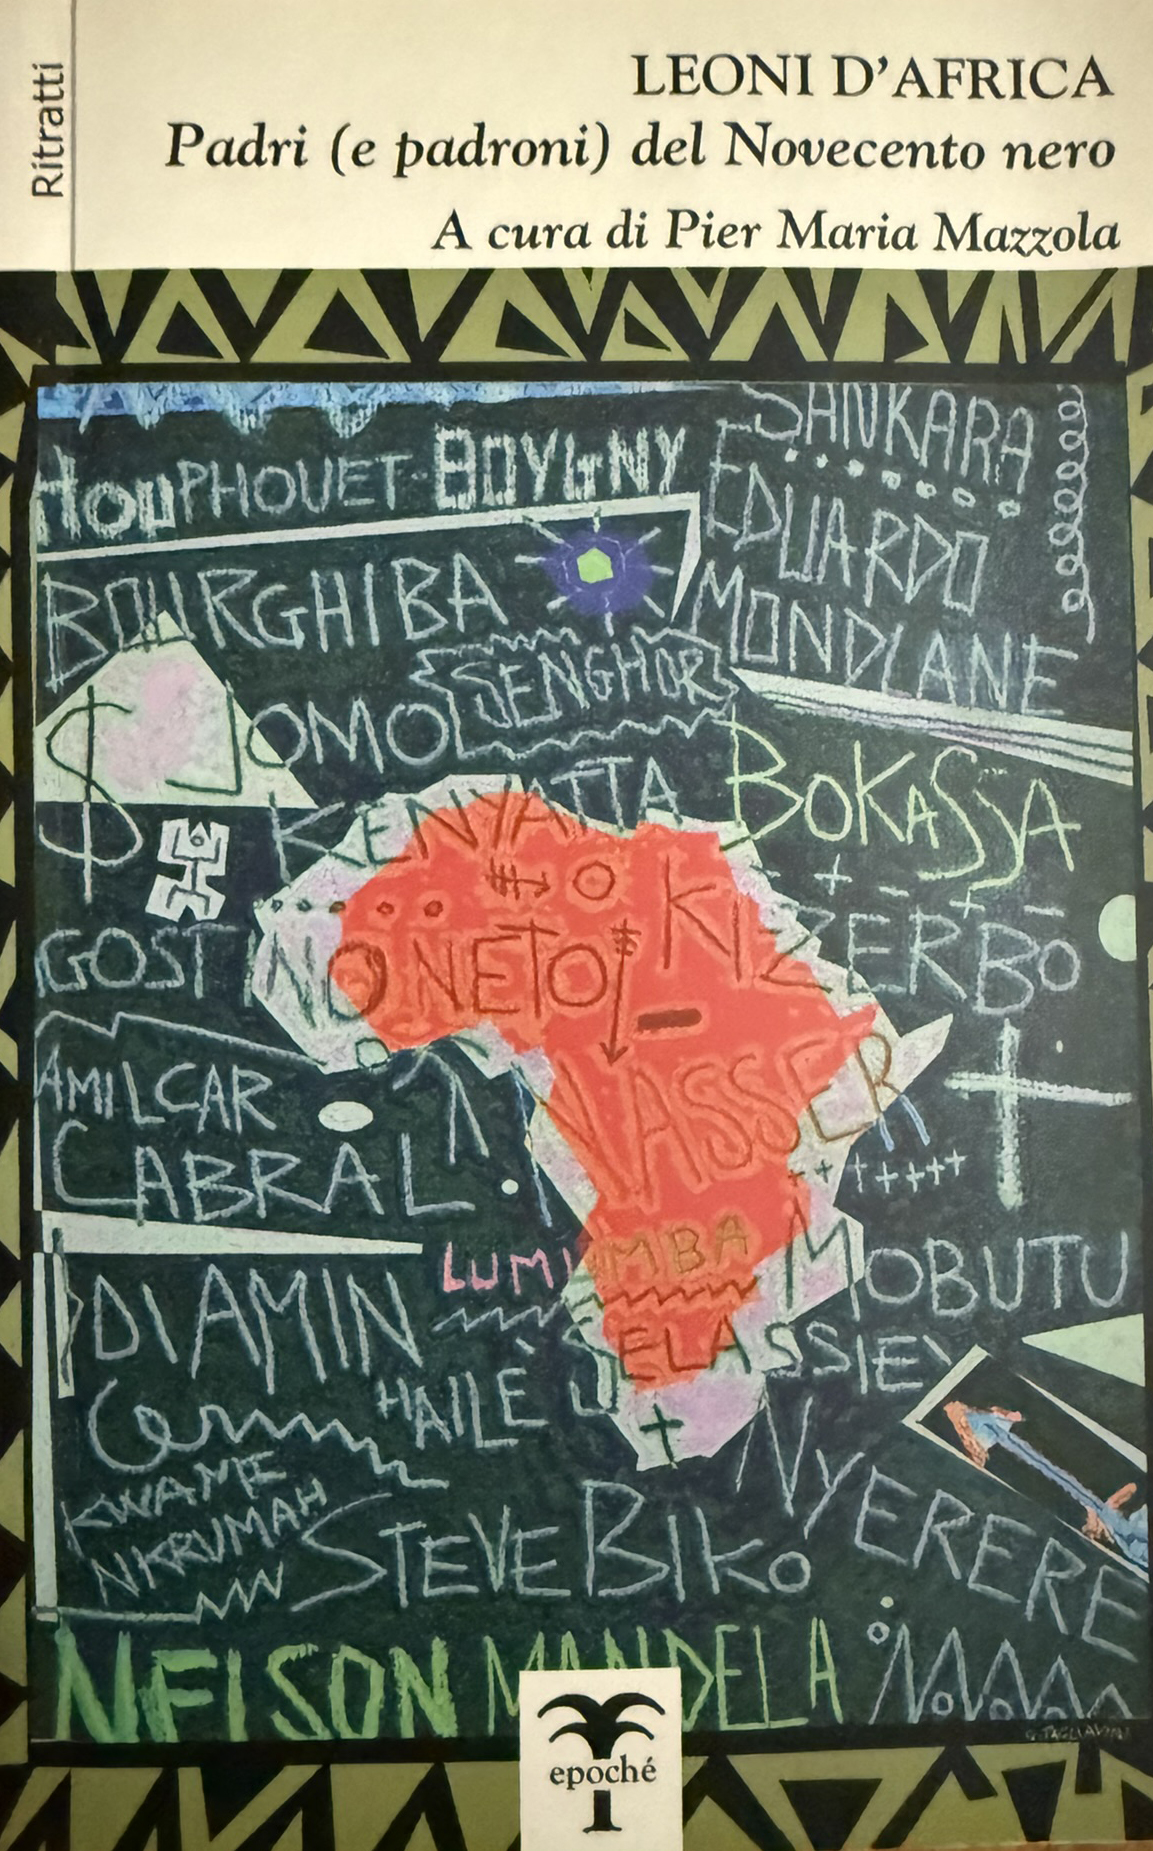 Ritratti
LEONI D'AFRICA
Padri (e padroni) del Novecento nero
A cura di Pier Maria Mazzola
SANKARA
HOUPHOUET-BOYGNY
EDUARDO
MONDLANE
BOURGHIBA
SENGHOR
JOMO
KENYATTA
BOKASSA
KIZERBO
GOSTINO NETO
AMILCAR
CABRAL
NASSER
LUMUMBA
MOBUTU
IDI AMIN
HAILÈ SELASSIE
KWAME
NKRUMAH
STEVE BIKO
NYERERE
NELSON MANDELA
G. TAGLIAVINI
epoché